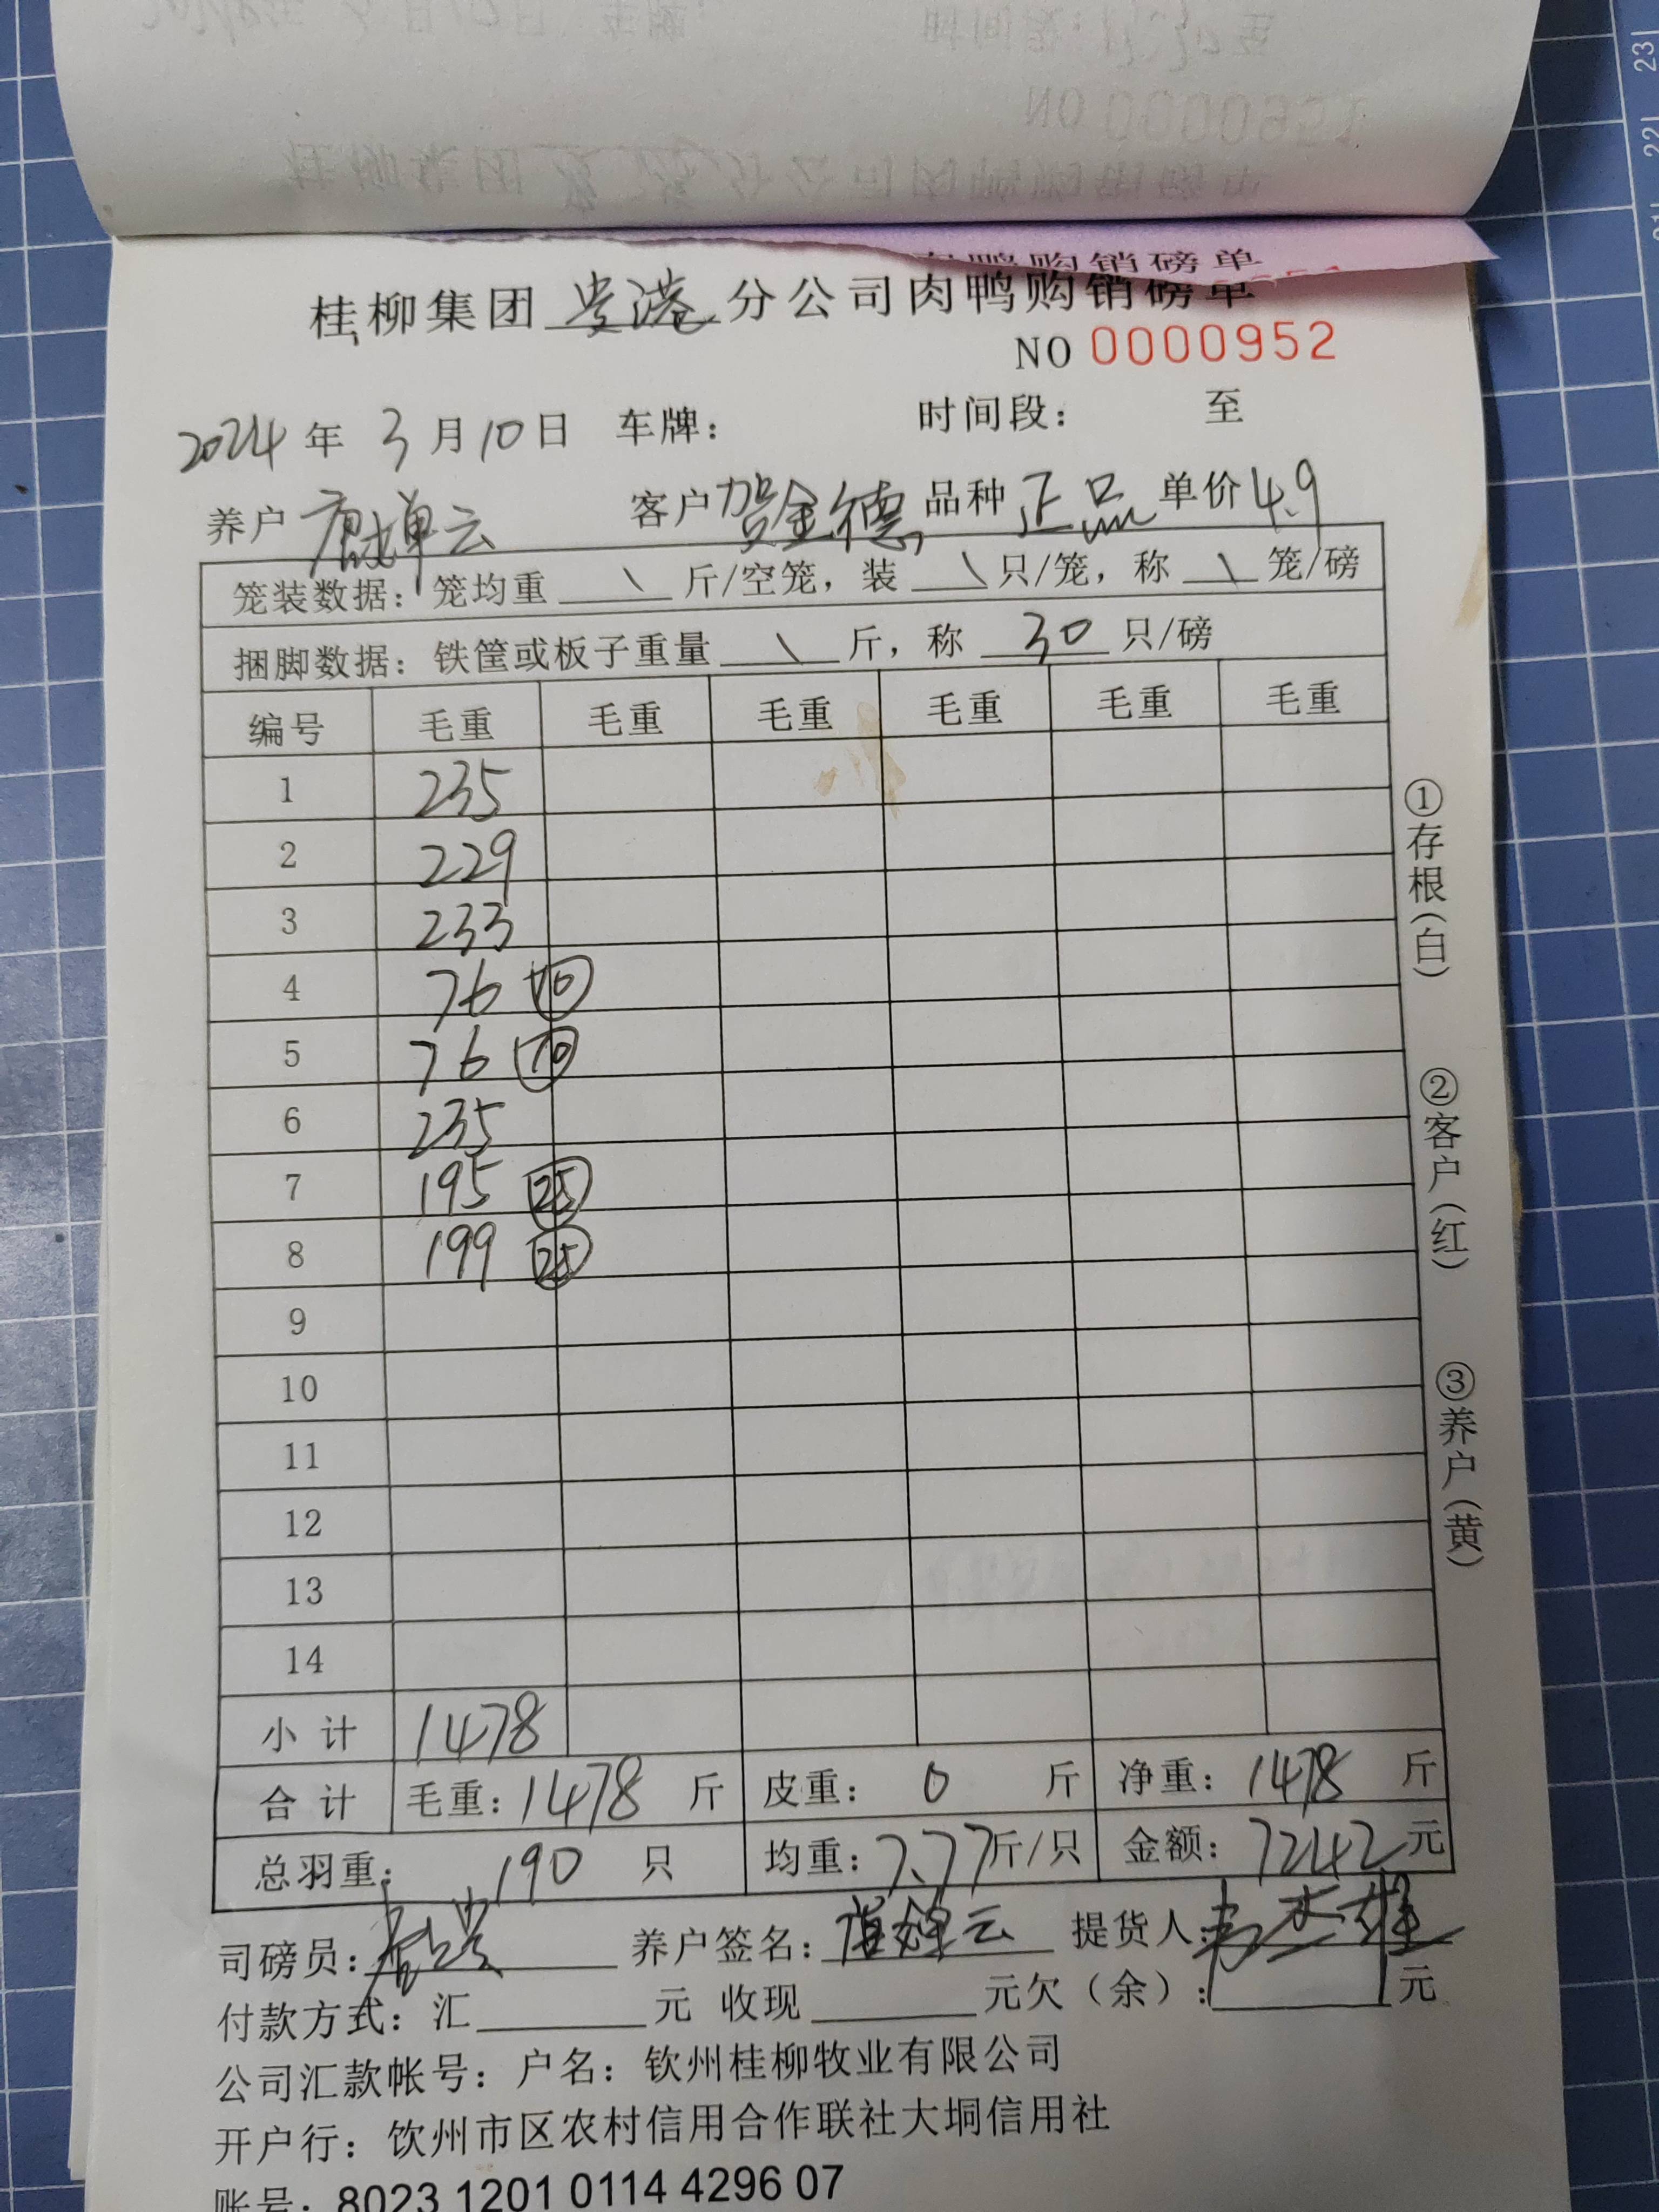 桂柳集团贵港分公司肉鸭购销磅单
NO 0000952
2024年 3月10日 车牌： 时间段： 至
养户 客户 贺金德 品种 正品 单价 4.9
笼装数据：笼均重 \ 斤/空笼，装 \ 只/笼，称 \ 笼/磅
捆脚数据：铁筐或板子重量 \ 斤，称 30 只/磅
编号 毛重 毛重 毛重 毛重 毛重 毛重
1 235
2 229
3 233
4 76 10
5 76 10
6 235
7 195 25
8 199 25
9
10
11
12
13
14
小计 1478
合计 毛重：1478 斤 皮重： 0 斤 净重：1478 斤
总羽重： 190 只 均重：7.77斤/只 金额：7242元
司磅员： 养户签名： 提货人：
付款方式：汇 元 收现 元欠（余）： 元
公司汇款帐号：户名：钦州桂柳牧业有限公司
开户行：钦州市区农村信用合作联社大垌信用社
账号：8023 1201 0114 4296 07
①存根(白)
②客户(红)
③养户(黄)